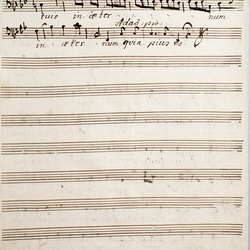 tuis in æter num
Adag:sio
in æter num quia pius es.